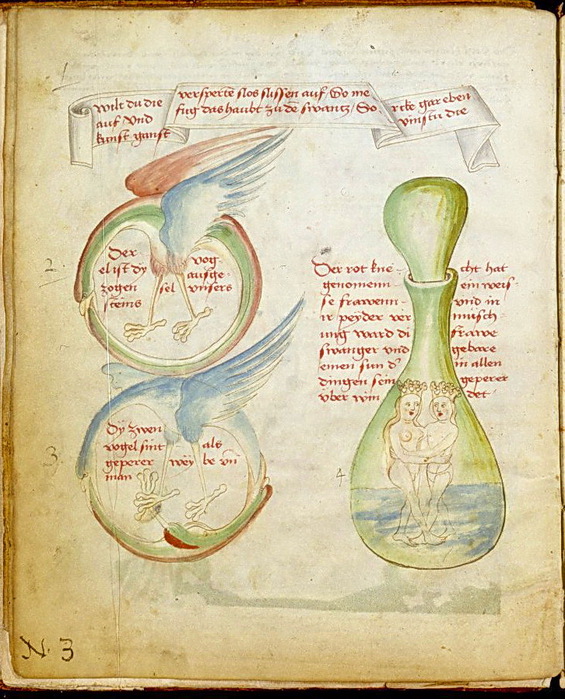 1
wilt du die versperte slos slissen auf / So me rcke gar eben
auf Vnd fug das haubt zu dē swantz / So vinstu die
kunst gantz
2
Der vog-
el ist dy ausge-
zogen sel vnsers
steins
3
Dy zwen
vogel sint als
geperer wey be vn̄
man
4
Der rot kne cht hat
genomenn ein weis
se frawenn vnd in
ir peyder ver misch
ung ward di frawe
swanger vnd gebare
einen sun d' in allen
dingen sein geperer
vber win det
N. 3